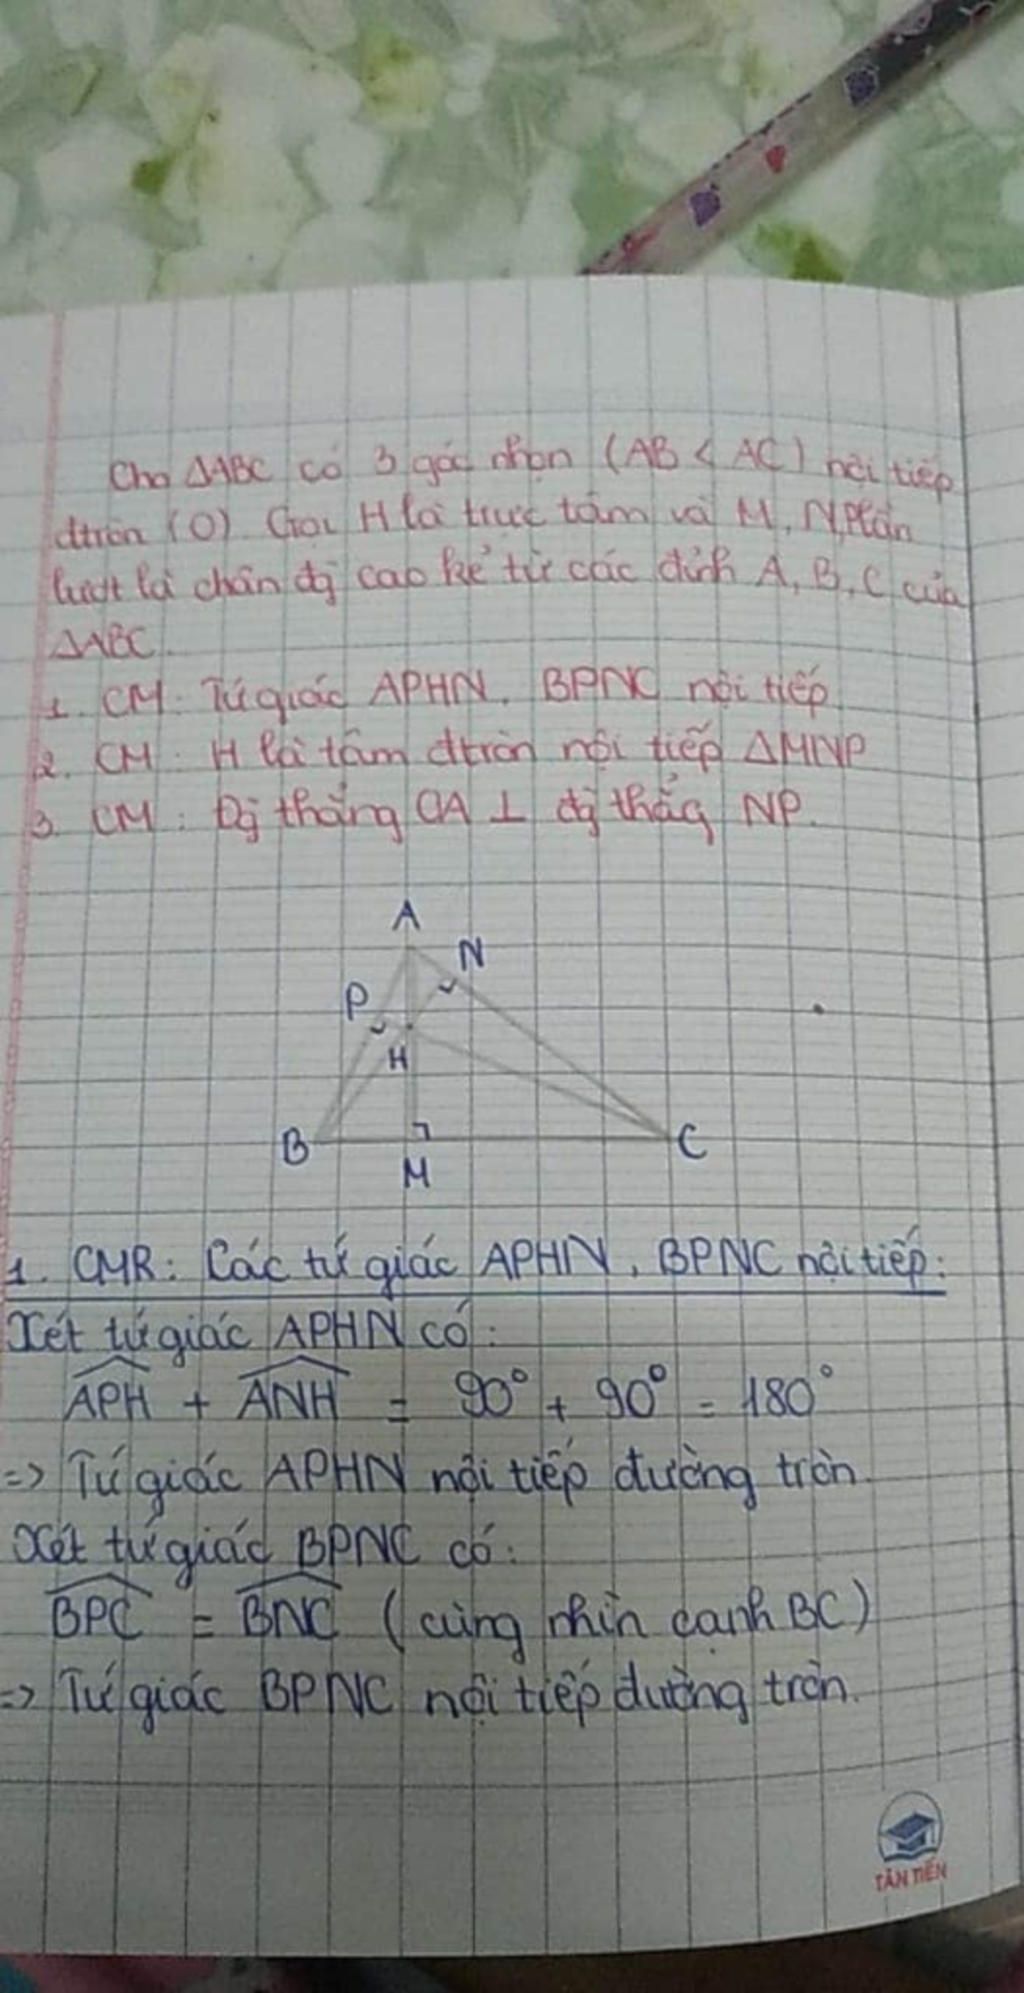 Cho ΔABC có 3 góc nhọn (AB < AC) nội tiếp
đtròn (O). Gọi H là trực tâm và M, N, P lần
lượt là chân đg cao kẻ từ các đỉnh A, B, C của
ΔABC.
1. CM: Tứ giác APHN, BPNC nội tiếp
2. CM: H là tâm đtròn nội tiếp ΔMNP
3. CM: Đg thẳng OA ⊥ đg thẳg NP.
A
N
P
H
B
C
M
1. CMR: Các tứ giác APHN, BPNC nội tiếp:
Xét tứ giác APHN có:
\widehat{APH} + \widehat{ANH} = 90° + 90° = 180°
=> Tứ giác APHN nội tiếp đường tròn.
Xét tứ giác BPNC có:
\widehat{BPC} = \widehat{BNC} (cùng nhìn cạnh BC)
=> Tứ giác BPNC nội tiếp đường tròn.
TÂN TIẾN